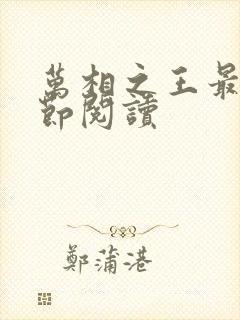 萬相之王最
節閱讀
鄭蒲港